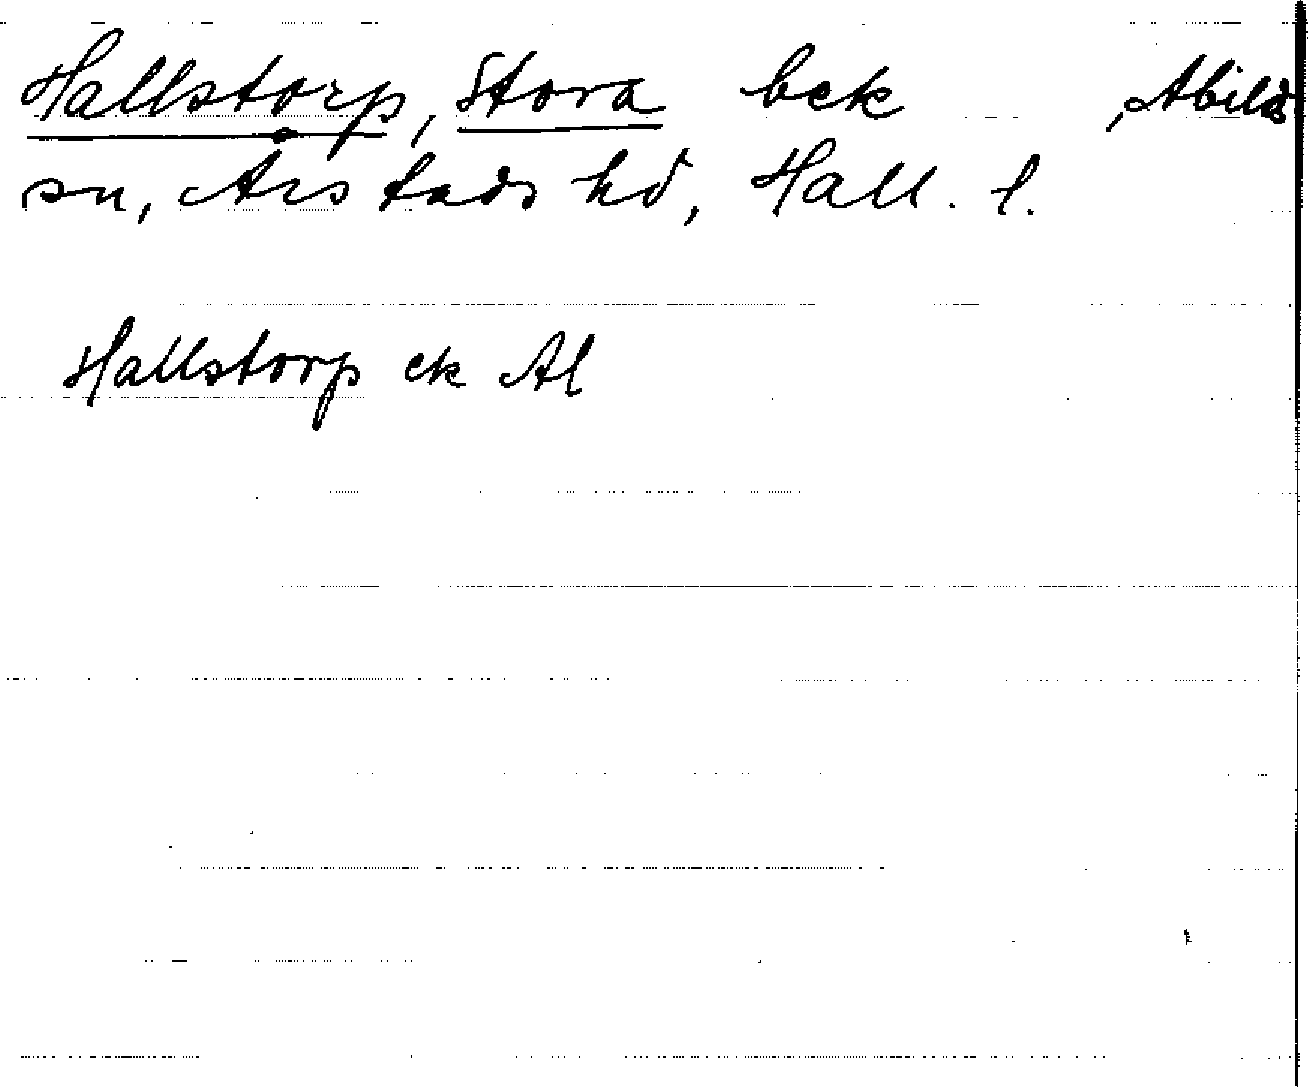 Hallstorp, Stora bek , Abilds
sn, Årstads hd, Hall. l.
Hallstorp ek Al